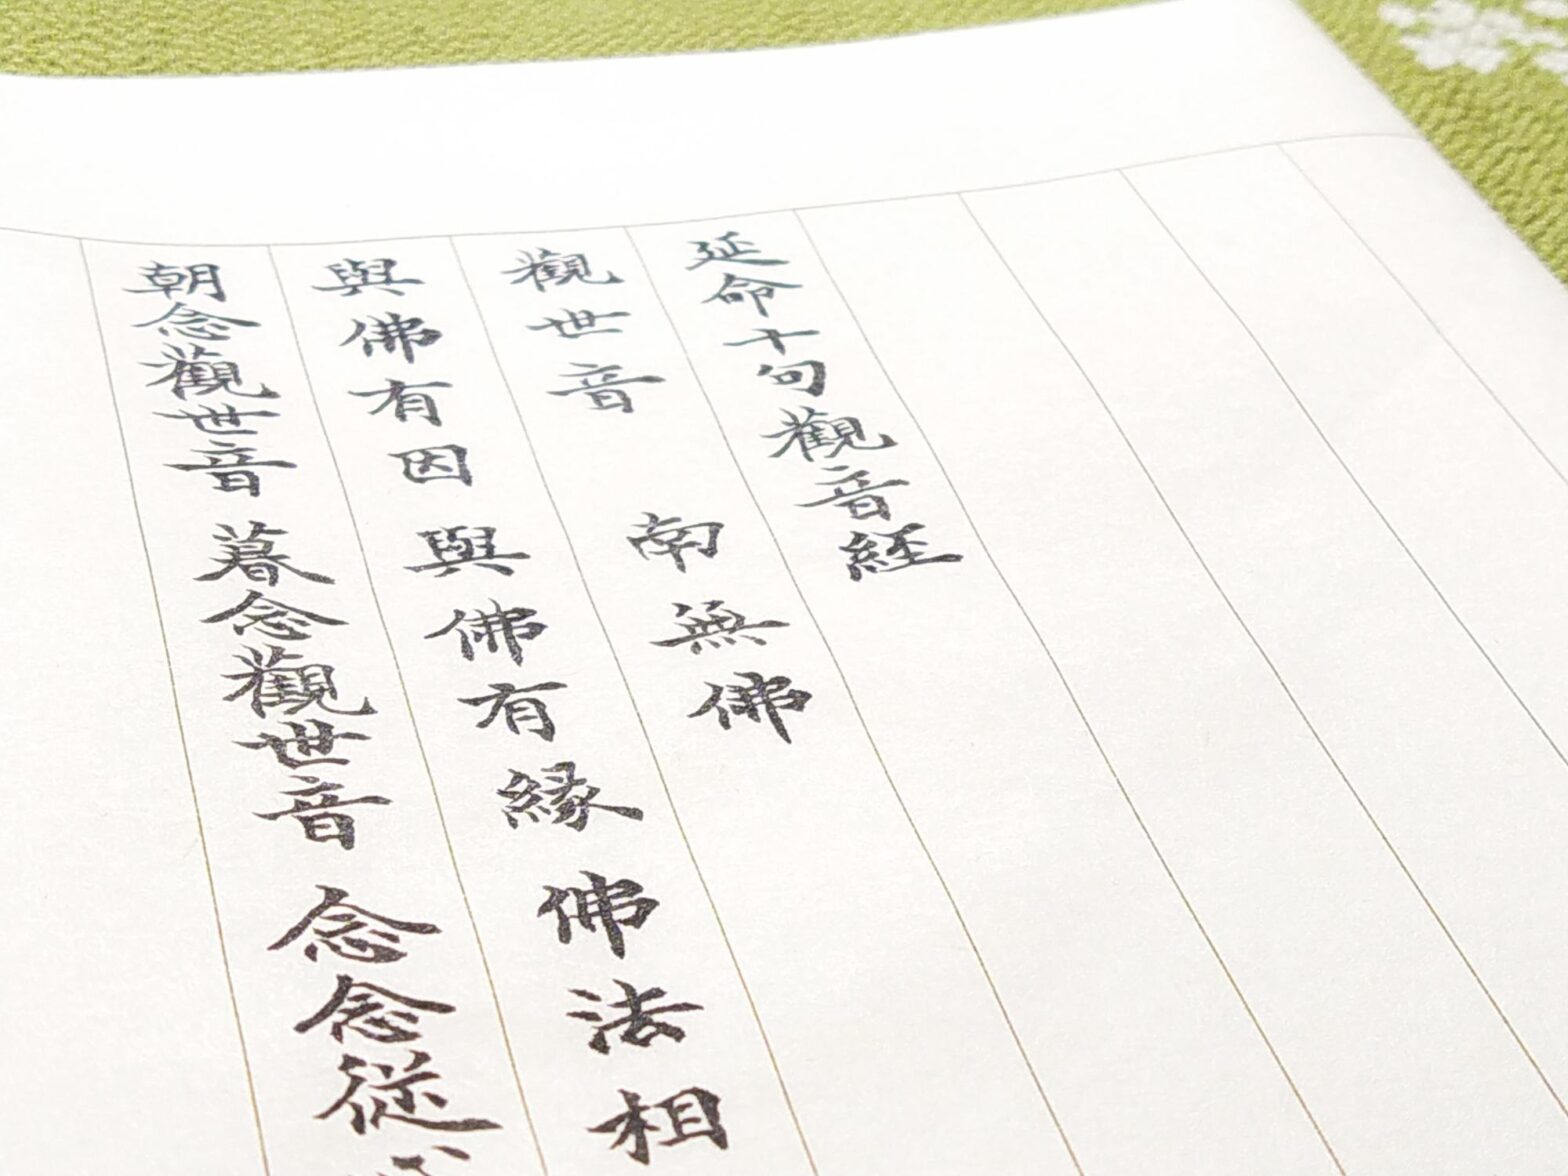 延命十句觀音経
觀世音　南無佛
與佛有因與佛有縁佛法相
朝念觀世音暮念觀世音念念従